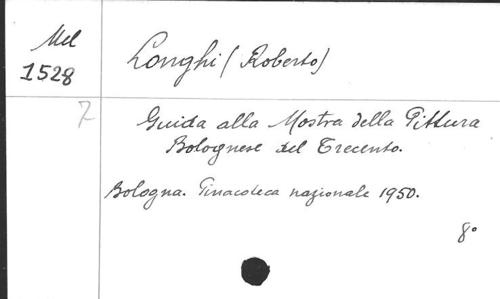 Mel
1528
7
Longhi (Roberto)
Guida alla Mostra della Pittura
Bolognese del Trecento.
Bologna. Pinacoteca nazionale 1950.
8°